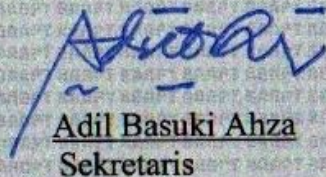 Adil Basuki Ahza
Sekretaris